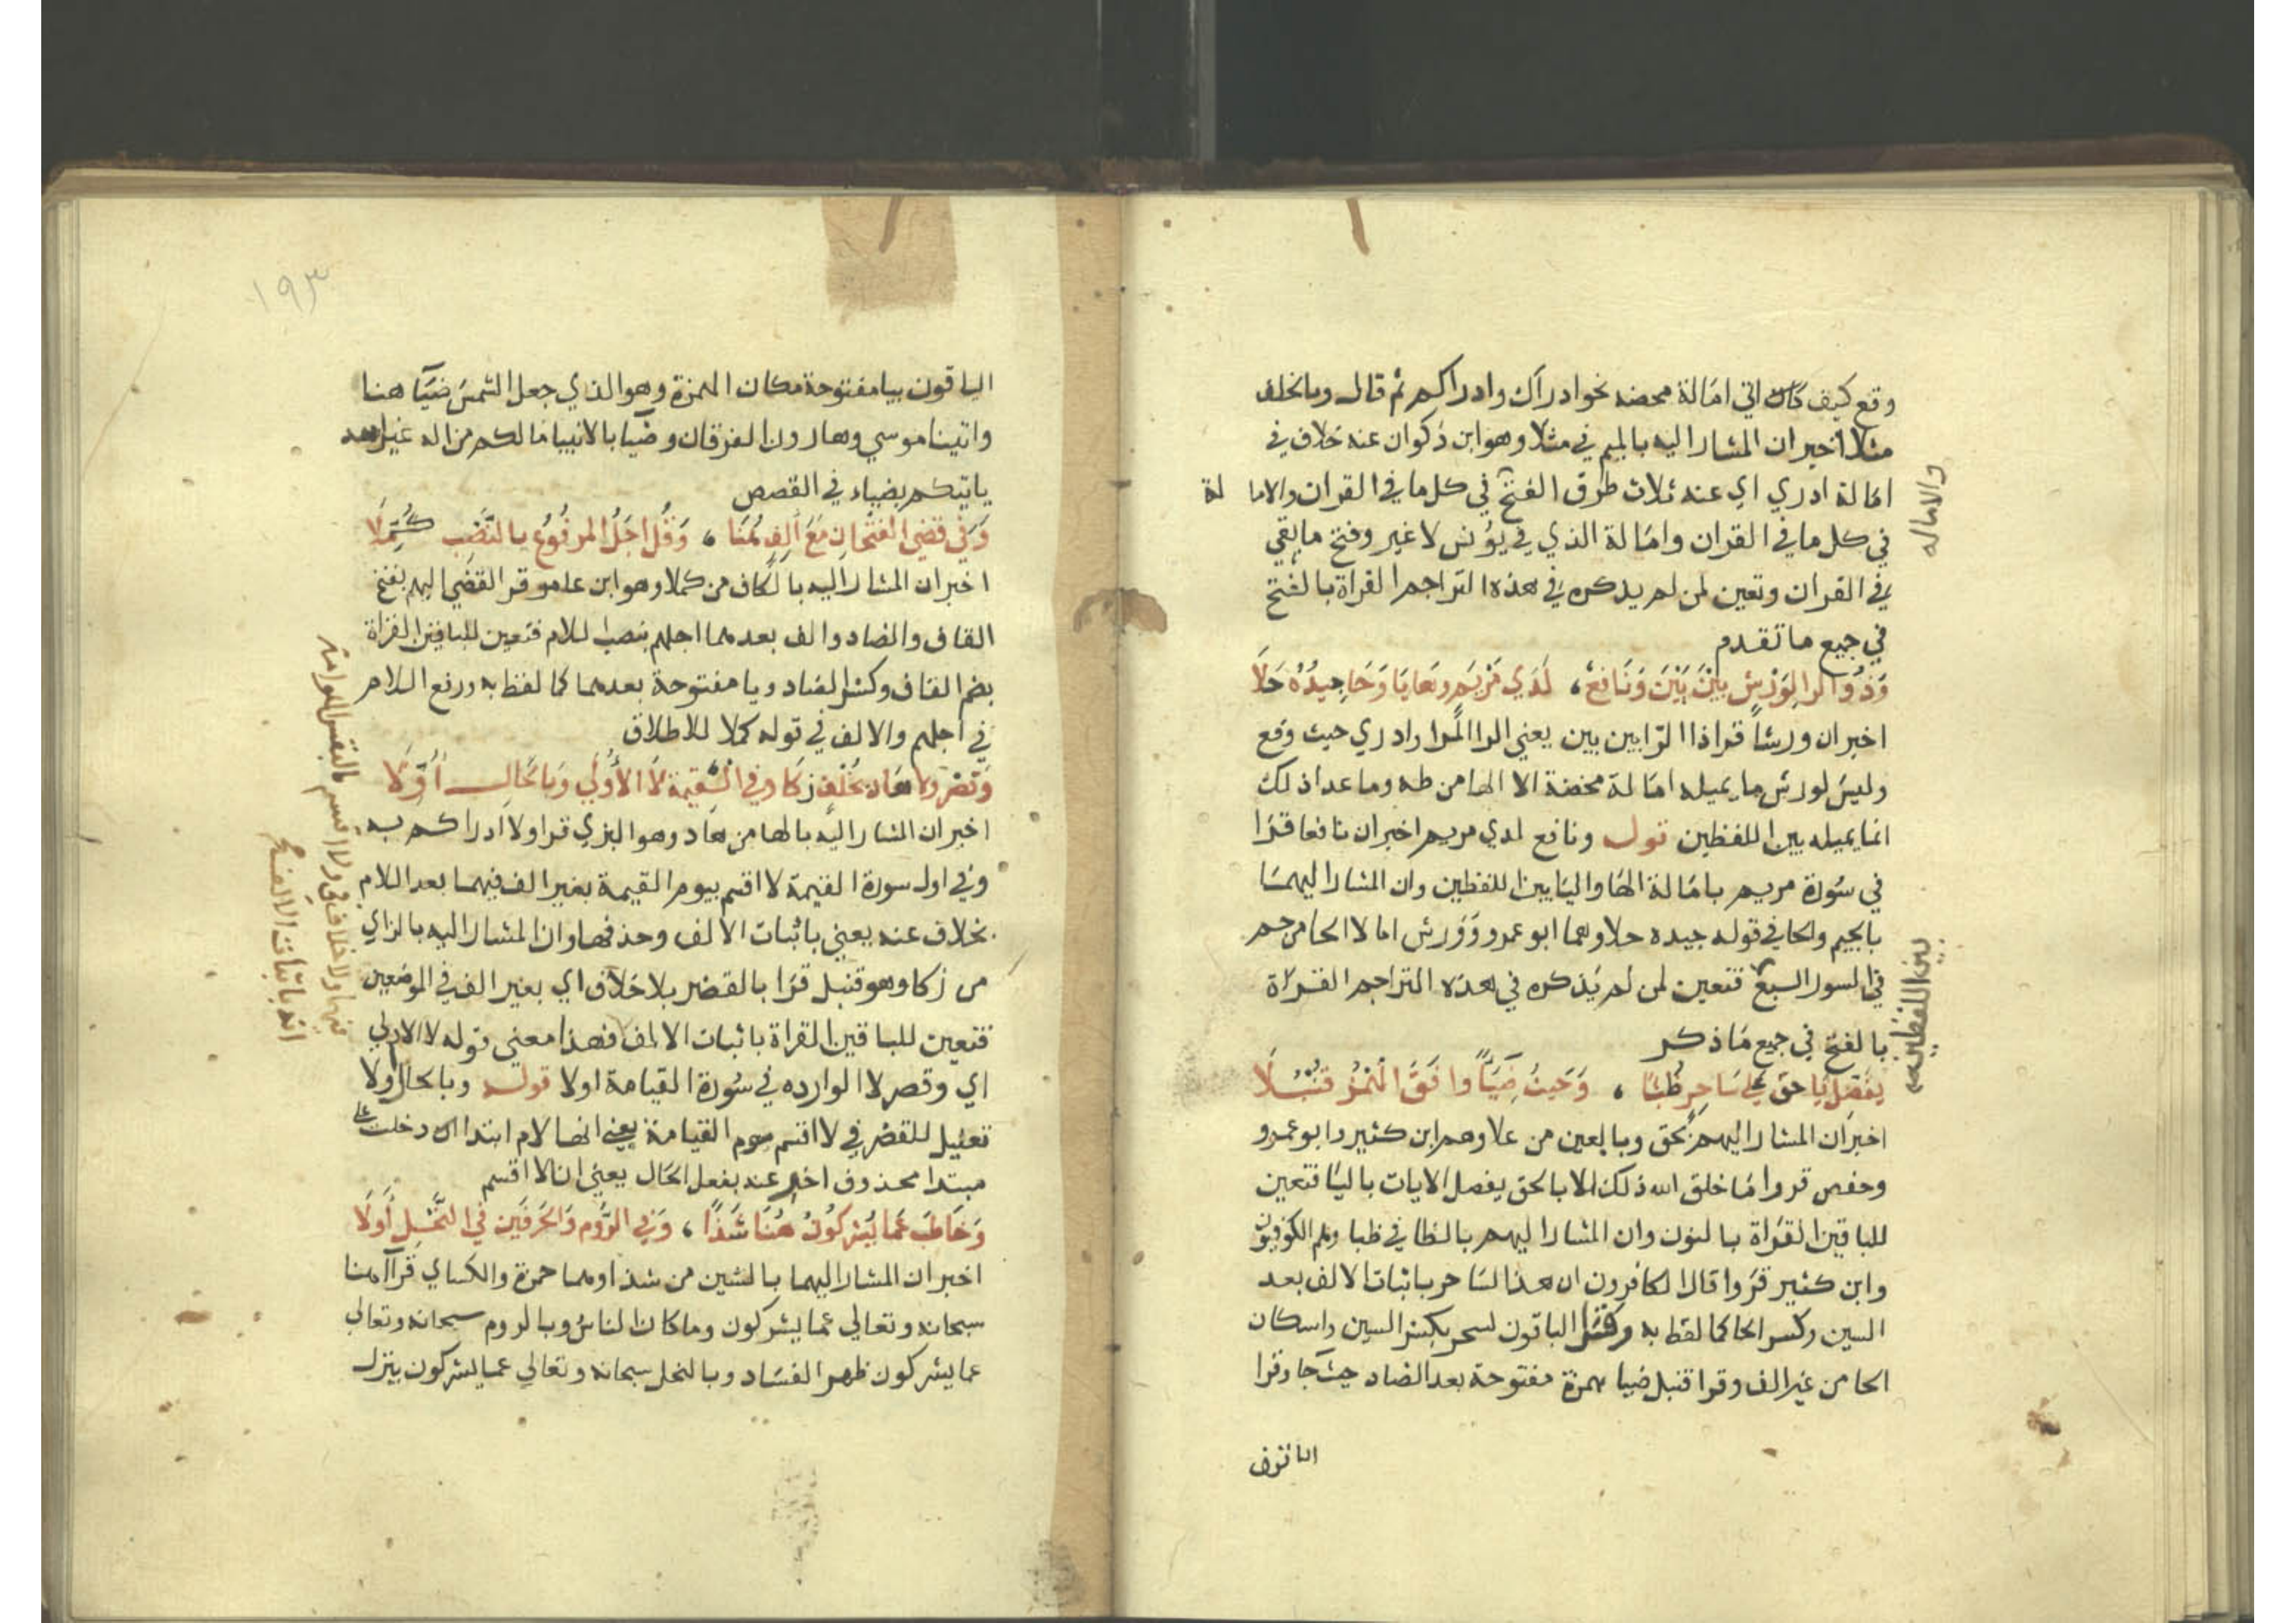 وقع كيف كان اتي امالة محضه نحو ادراك وادراكم ثم قال وبالخلف
مثلا اخبر ان المشار اليه بالميم في مثلا وهو ابن ذكوان عنه خلاف في
امالة ادري اي عنه ثلاث طرق الفتح في كل ما في القران والاما لة
في كل ما في القران وامالة الذي في يونس لا غير وفتح ما بقي
في القران وتعين لمن لم يذكره في هذه التراجم القراة بالفتح
في جميع ما تقدم
وَذُو الرا لِوَرْشٍ بَيْنَ بَيْنَ وَنَافِعٌ، لَدَي مَرْيَم هَا يَا وَحَا جِيدُهُ حَلَا
اخبر ان ورشا قرا ذا الرا بين بين يعني الرا المرا وادري حيث وقع
وليس لورش ما يميله امالة محضة الا الها من طه وما عدا ذلك
انما يميله بين اللفظين قوله ونافع لدي مريم اخبر ان نافعا قرا
في سورة مريم بامالة الها واليا بين اللفظين وان المشار اليهما
بالجيم والحا في قوله جيده حلا وهما ابو عمرو وورش امالا الحا من حم
في السور السبع فتعين لمن لم يذكره في هذه التراجم القراة
بالفتح في جميع ما ذكر
يفَصِّل يَا حَق عَلى سَاحِرٌ ظُبًا، وَحَيثُ ضِيَاً وَافَقَ الْهَمْزُ قُنْبُلَا
اخبر ان المشار اليهم بحق وبالعين من علا وهم ابن كثير وابو عمرو
وحفص قروا ما خلق الله ذلك الا بالحق يفصل الايات باليا فتعين
للباقين القراة بالنون وان المشار اليهم بالظا في ظبا وهم الكوفيون
وابن كثير قروا قال الكافرون ان هذا لساحر باثبات الالف بعد
السين وكسر الحا كما لفظ به وقرا الباقون لسحر بكسر السين واسكان
الحا من غير الف وقرا قنبل ضيا بهمزة مفتوحة بعد الضاد حيث جا وقرا
الباقون
والاماله
بين اللفظين
١٩٣
الباقون بيا مفتوحة مكان الهمزة وهو الذي جعل الشمس ضيآ هنا
واتينا موسي وهارون الفرقان وضيا بالانبيا مالكم من اله غير الله
ياتيكم بضياء في القصص
وَفي قضِي الفَتْحَانِ مَعَ أَلِفٍ هُنَا، وَقُل اجَلُ المرفُوعُ بالنَّصْبِ كُمِّلَا
اخبر ان المشار اليه بالكاف من كملا وهو ابن عامر قرا لقضي اليهم بفتح
القاف والضاد والف بعدهما اجلهم بنصب اللام فتعين للباقين القراة
بضم القاف وكسر الضاد ويا مفتوحة بعدهما كما لفظ به ورفع اللام
في اجلهم والالف في قوله كملا للاطلاق
وَقَصْر ولا هَاد بخُلْفٍ زَكَا وفي القيمة لَا الأُولَي وَبالحَالِ أُوِّلَا
اخبر ان المشار اليه بالها من هاد وهو البزي قرا ولا ادراكم به
وفي اول سورة القيمة لا اقسم بيوم القيمة بغير الف فيهما بعد اللام
بخلاف عنه يعني باثبات الالف وحذفها وان المشار اليه بالزاي
من زكا وهو قنبل قرا بالقصر بلا خلاف اي بغير الف في الموضعين
فتعين للباقين القراة باثبات الالف فهذا معني قوله لا الاولي
اي وقصر لا الوارده في سورة القيامة اولا قوله وبالحال اولا
تعليل للقصر في لا اقسم بيوم القيامة يعني انها لام ابتدا دخلت علي
مبتدا محذوف اخبر عنه بفعل الحال يعني لانا اقسم
وَخَاطَبَ عَمَّا يُشْرِكُونَ هُنَا شَذًا، وَفِي الرُّوم وَالحَرفَين في النَّحْلِ أَوَّلَا
اخبر ان المشار اليهما بالشين من شذا وهما حمزة والكساي قرآ هنا
سبحانه وتعالي عما يشركون وما كان الناس وبالروم سبحانه وتعالي
عما يشركون ظهر الفساد وبالنحل سبحانه وتعالي عما يشركون ينزل
ولا اقسم بالنفس اللوامة
فيها ولا خلاف في
انه باثبات الالف